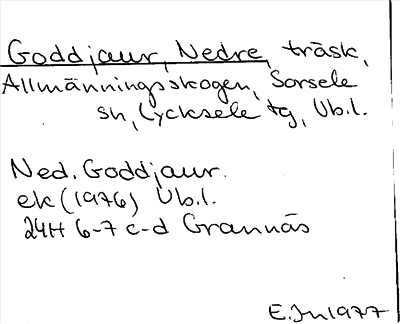 Goddjaur, Nedre, träsk,
Allmänningsskogen, Sorsele
sn, Lycksele tg, Vb.l.
Ned. Goddjaur.
ek (1976) Vb.l.
24H 6-7 c-d Grannäs
E.Jn 1977